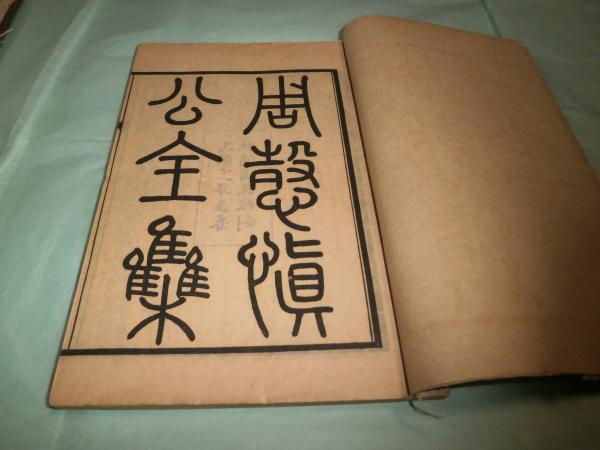 周愨慎
公全集